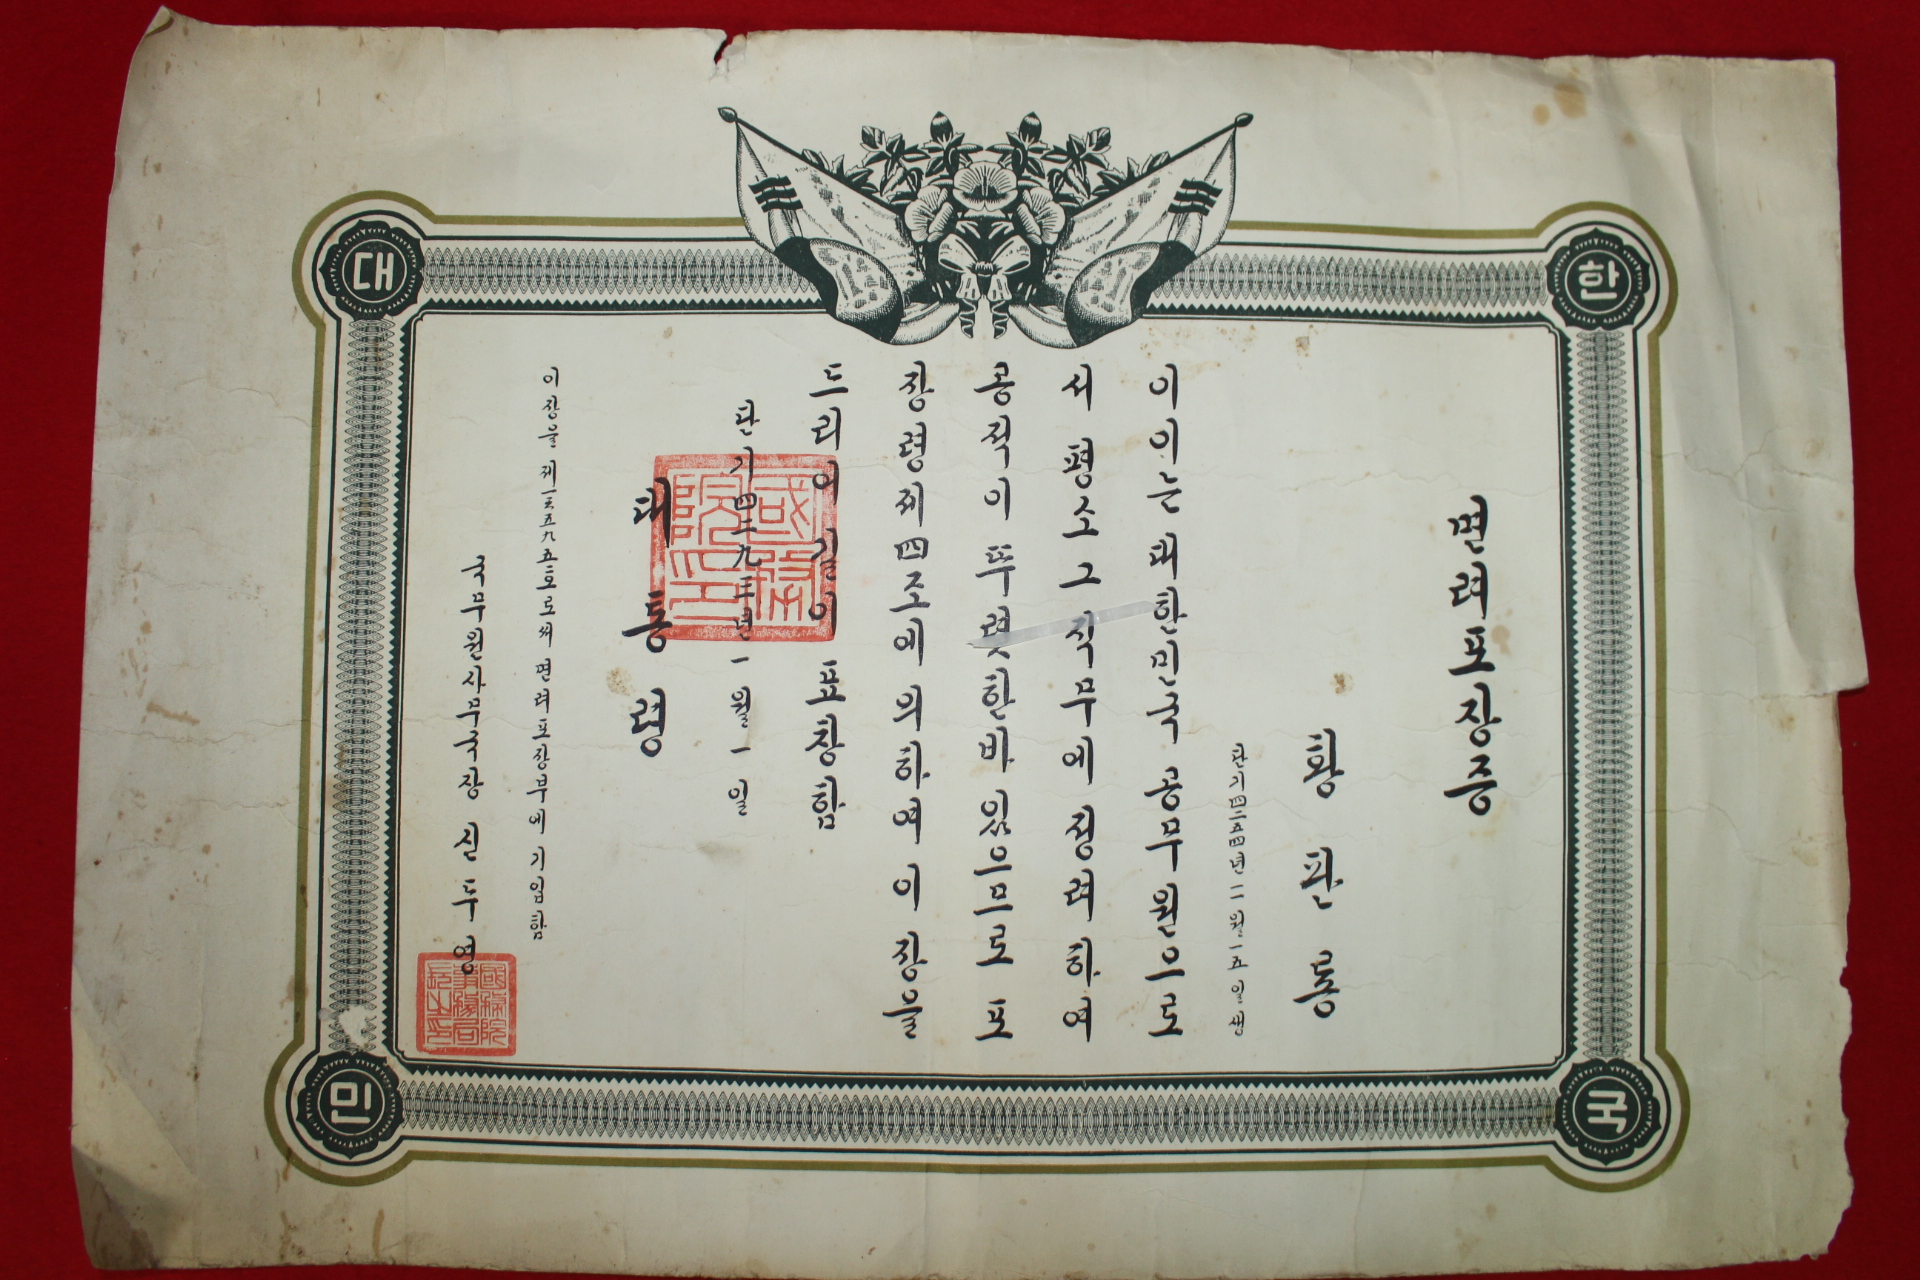 대한민국
면려포장증
황판룡
단기四二五四년一一월一五일생
이이는 대한민국 공무원으로
서 평소 그 직무에 정려하여
공적이 뚜렷한바 있으므로 포
장령제四조에 의하여 이 장을
드리어 길이 표창함
단기四二九三년一월一일
대통령
이장을 제一三五九五호로써 면려포장부에 기입함
국무원사무국장 신두영
國務院印
國務院事務局長之印